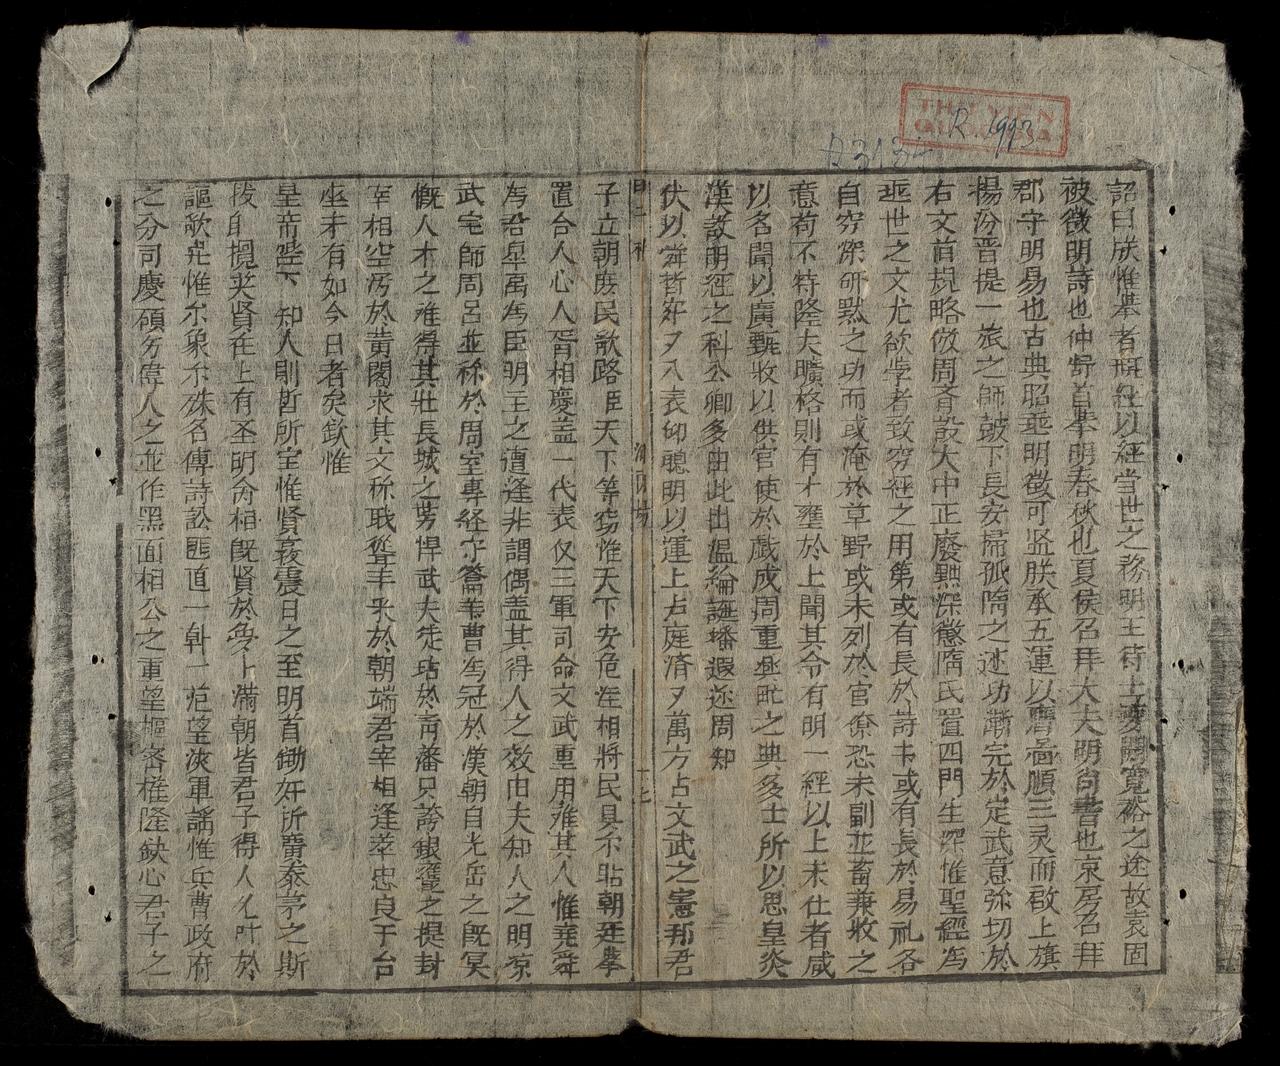 詔曰朕惟舉者旣經以經當世之務明王待士要開寬裕之途故袁固
被徵明詩也仲舒首舉明春秋也夏侯召拜大夫明尙書也京房召拜
郡守明易也古典昭垂明徵可鑒朕承五運以膺啚順三灵而啟上旗
揚汾晋提一旅之師鼓下長安掃孤隋之迹功漸完於定武意弥切於
右文首規略倣周斉設大中正廢黜深懲隋氏置四門生深惟聖經爲
垂世之文尤欲學者致穷經之用第或有長於詩书或有長於易礼各
自穷深研黙之功而或淹於草野或未列於官僚恐未副並畜兼收之
意苟不特隆夫曠格則有才壅於上聞其令有明一經以上未仕者咸
以名聞以廣甄收以供官使於戱成周重丞毗之典多士所以思皇炎
漢設明經之科公卿多由此出溫綸誕播遐迩周知
伏以舜哲在 八表仰聰明以運上占庭済 萬方占文武之憲邦君
子立朝庶民歌路臣天下等窃惟天下安危注相將民具尒瞻朝廷舉
置合人心人胥相慶盖一代表仪三軍司命文武重用难其人惟堯舜
爲君皐禹爲臣明王之遭逢非謂偶盖其得人之效由夫知人之明粤
武宅師周呂並称於周室專経守籌韦曹爲冠於漢朝自光岳之旣冥
慨人才之难得其壯長城之势悍武夫徒玷於斉藩只誇銀瓮之提封
宰相空居於黄閣求其文称戢聳手乎於朝端君宰相逢萃忠良于台
座未有如今日者矣欽惟
皇帝陛下 知人則哲所宝惟賢哀震日之至明首鋤奸所廣泰茅之斯
拔則攬英賢在上有圣明俞相旣賢於 卜满朝皆君子得人允叶於
謳歌尭惟尒象尒殊名傳詩訟匪直一斡一范望浹軍謡惟兵曹政府
之分司慶碩 偉人之並作黑面相公之重望樞密権隆 心君子之
R 1993